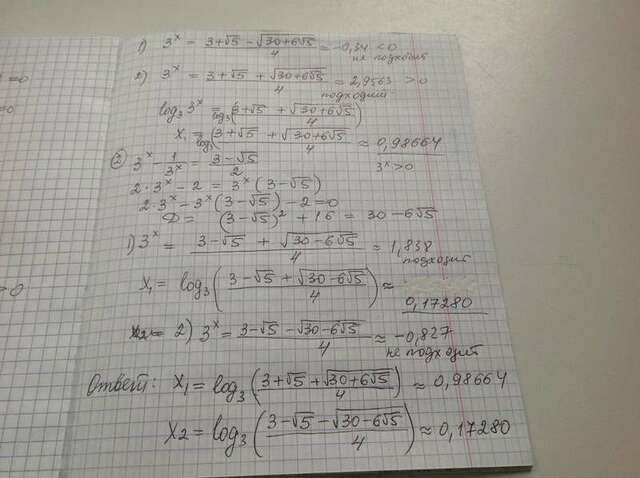 1) 3^x = (3+√5 − √(30+6√5))/4 = −0,34 < 0
не подходит
2) 3^x = (3+√5 + √(30+6√5))/4 = 2,9563 > 0
подходит
log₃ 3^x = log₃ (3+√5 + √(30+6√5))/4)
x₁ = log₃ (3+√5 + √(30+6√5))/4 ≈ 0,98664
② 3^x − 1/3^x = (3−√5)/2
3^x > 0
2·3^x − 2 = 3^x (3−√5)
2·3^x − 3^x (3−√5) − 2 = 0
Д = (3−√5)² + 16 = 30 − 6√5
1) 3^x = (3−√5 + √(30−6√5))/4 = 1,838
подходит
x₁ = log₃ ((3−√5 + √(30−6√5))/4) ≈
0,17280
2) 3^x = (3−√5 − √(30−6√5))/4 ≈ −0,827
не подходит
Ответ: x₁ = log₃ ((3+√5 + √(30+6√5))/4) ≈ 0,98664
x₂ = log₃ ((3−√5 − √(30−6√5))/4) ≈ 0,17280
=0
=0
>0